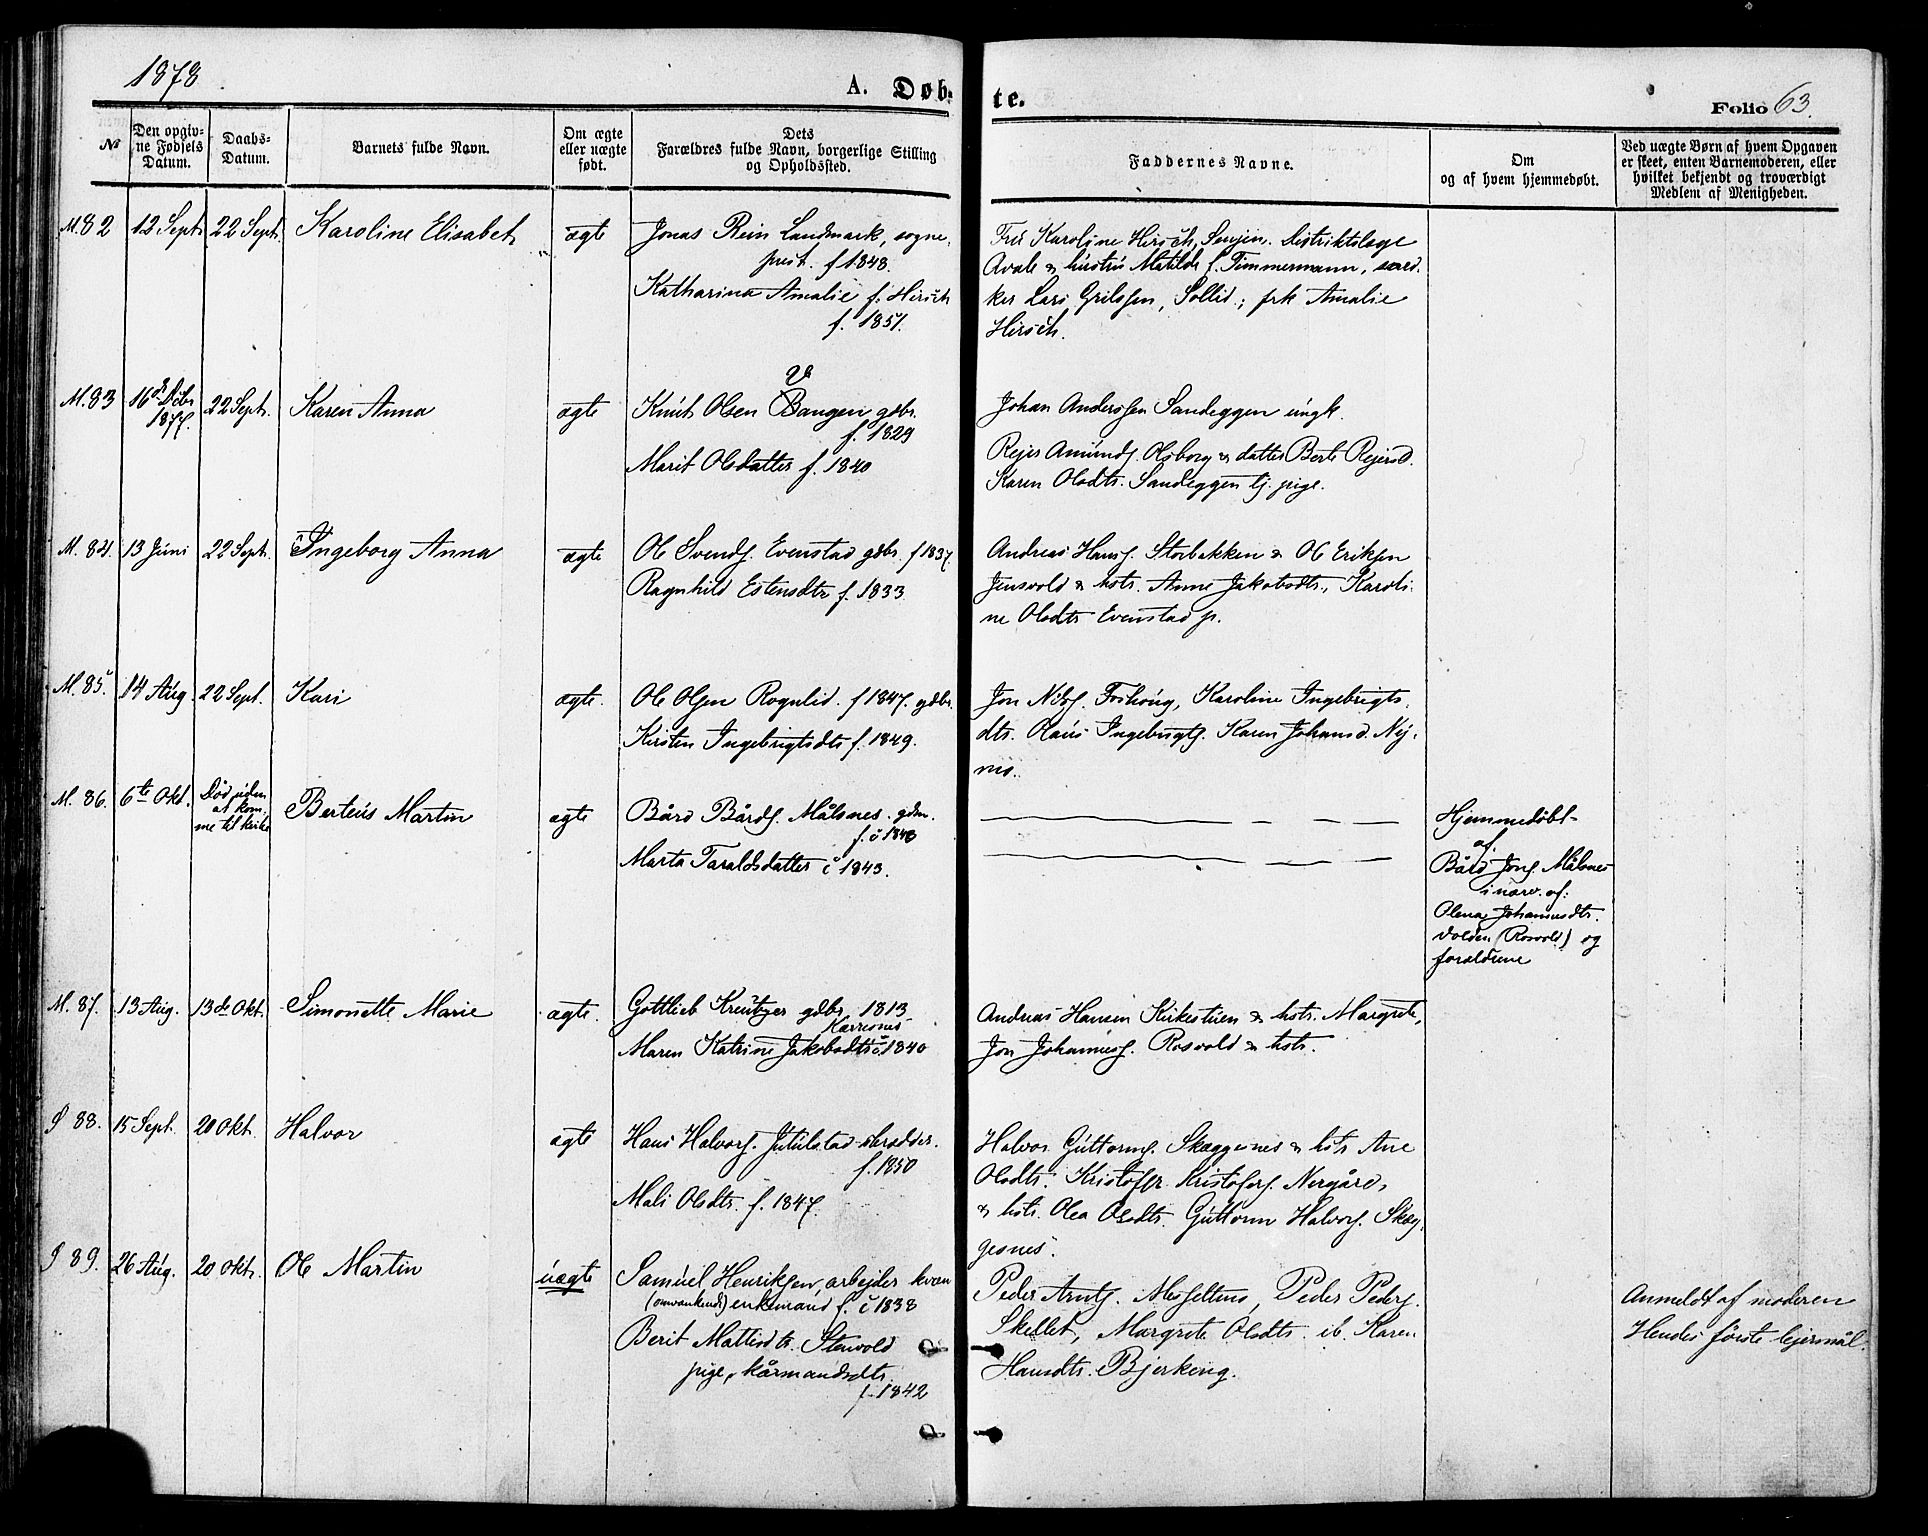 1878.
A. Døb-
te.
Folio 63.
№
Den opgiv-
ne Fødsels
Datum.
Daabs-
Datum.
Barnets fulde Navn.
Om ægte
eller uægte
født.
Dets
Forældres fulde Navn, borgerlige Stilling
og Opholdssted.
Faddernes Navne.
Om
og af hvem hjemmedøbt.
Ved uægte Børn af hvem Opgaven
er skeet, enten Barnemoderen, eller
hvilket bekjendt og troværdigt
Medlem af Menigheden.
M. 82
12 Sept.
22 Sept.
Karoline Elisabet
ægte
Jonas Rein Landmark, sogne-
prest. f 1848.
Katharina Amalie f. Hirsch
f. 1851.
Fru Karoline Hirsch, Senjen. Distriktslæge
Avale & hustru Matilde f. Timmermann,
ker Lars Grilssen, Sollid; frk Amalie
Hirsch.
M. 83
16de Decbr
1877.
22 Sept.
Karen Anna
ægte
V
Knut Olsen Bangen gdbr.
f. 1829
Marit Olsdatter f. 1840
Johan Anderssen Sandeggen ungk.
Rejer Amunds. Olsborg & datter Berte Rejersd.
Karen Olsdtr. Sandeggen tj. pige.
M. 84.
13 Juni
22 Sept.
Ingeborg Anna
ægte
Ole Svends. Evenstad gdbr. f 1837
Ragnhild Estensdtr f. 1833
Andreas Hans. Storbakken & Ole Eriksen
Jensvold & hstr. Anne Jakobsdtr., Karoli-
ne Olsdtr Evenstad p.
M. 85.
14 Aug.
22 Sept.
Kari
ægte.
Ole Olsen Rognlid. f 1847. gdbr.
Kirsten Ingebrigtsdtr f. 1849.
Jon Nils. Foshaug, Karoline Ingebrigts-
dtr. Claus Ingebrigts. Karen Johansd. Nij-
mo.
M. 86.
6te Okt.
Død uden
at kom-
me til kirke
Berteus Martin
ægte
Bård Bårds. Målsnes. gdm.
f. i 1848
Marta Taraldsdatter i 1843.
Hjemmedøbt
af
Bård Jons. Målsnes
i nærv. af:
Olena Johannesdtr.
Volden (Rosvold) og
forældrene
M. 87.
13 Aug.
13de Okt.
Simonette Marie
ægte.
Gottlieb Kreutzer gdbr. 1813
Karresnes
Maren Katrine Jakobsdtr i 1840
Andreas Hansen Kirkestuen & hstr. Margrete,
Jon Johannes. Rosvold & hstr.
Ø 88.
15 Sept.
20 Okt.
Halvor
ægte
Hans Halvors. Jutulstad skrædder.
f. 1850
Mali Olsdtr. f. 1847.
Halvor Guttorms. Skæggesnes & hstr Ane
Olsdtr. Kristoffer Kristofers. Nergård,
& hstr. Olea Olsdtr. Guttorm Halvors. Skæg-
gesnes.
Ø 89.
26 Aug.
20 Okt.
Ole Martin
uægte
Samuel Henriksen, arbejder kvæn
(omvankende) enkemand, f. i 1838
Berit Mattisdtr. Stenvold
pige, kårmandsdtr.
f. 1842
Peder Arnts. Messeltmo, Peder Peders.
Skellet, Margrete Olsdtr. ib. Karen
Hansdtr. Bjerkeng.
Anmeldt af moderen
Hendes første lejermål.